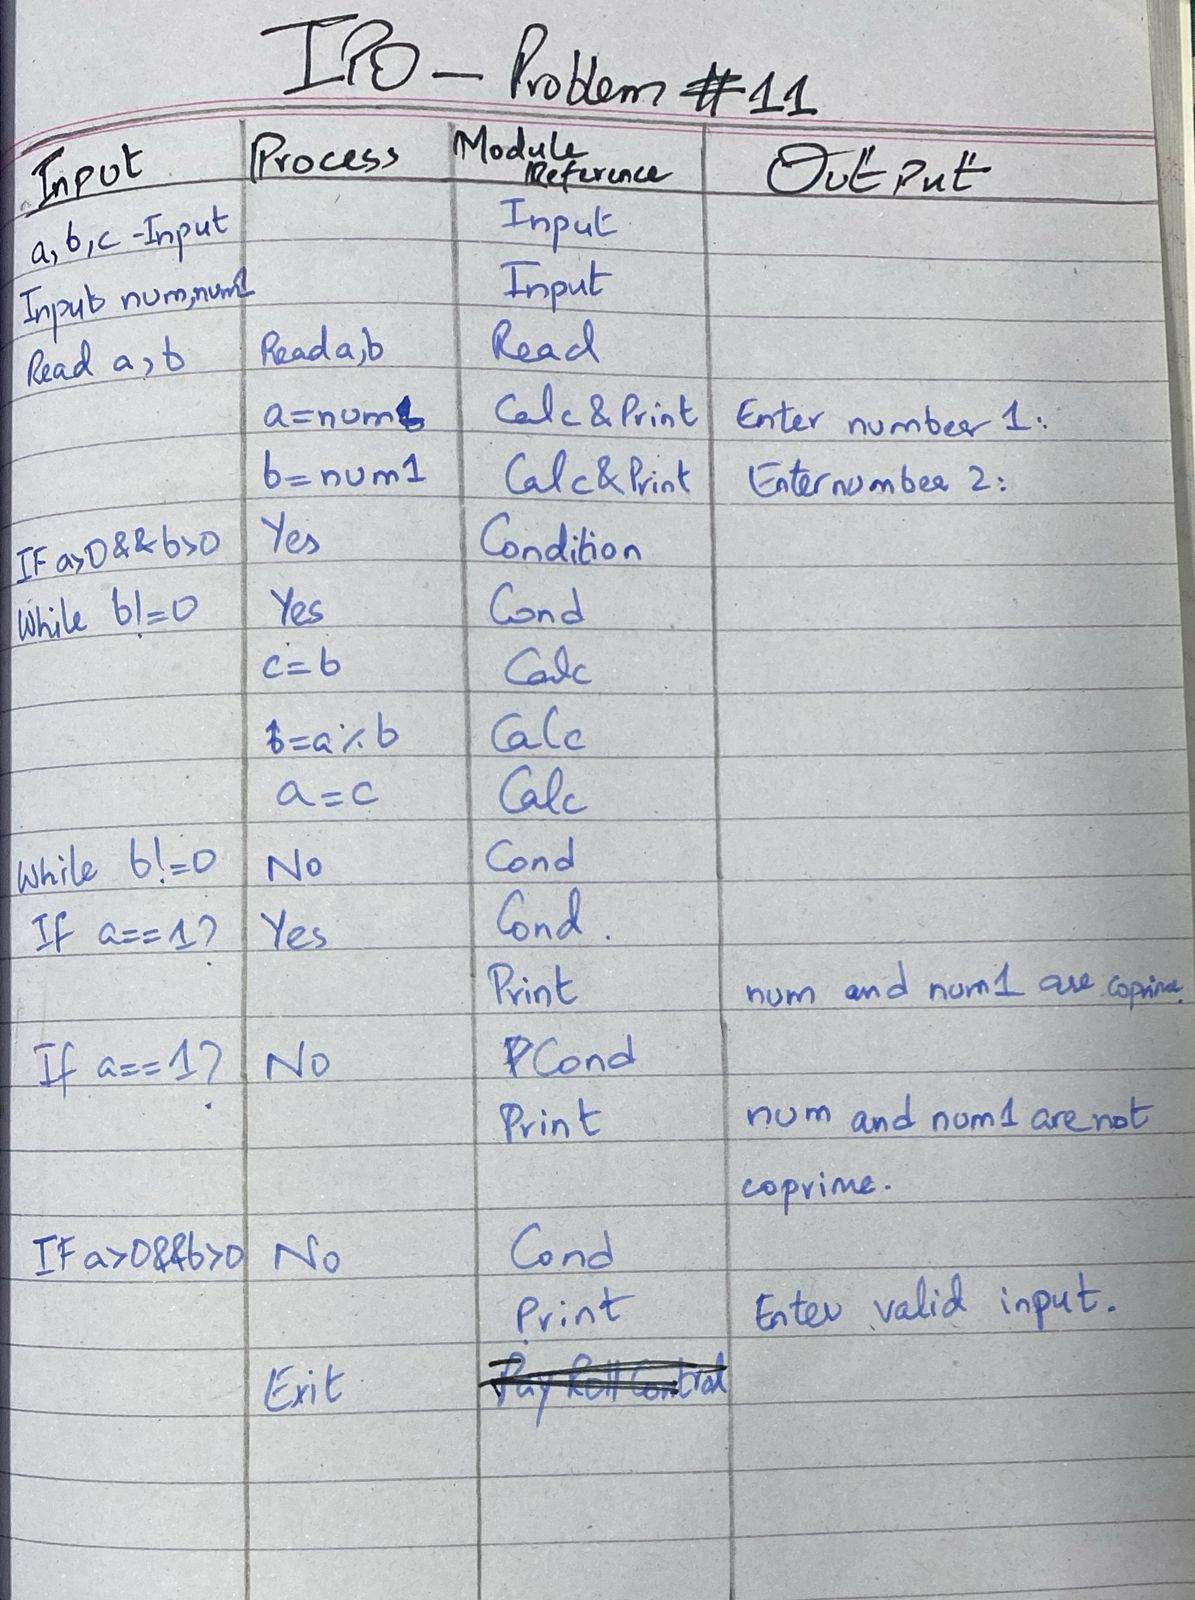 IPO - Problem #11
Input Process Module Reference Output
a, b, c - Input Input
Input num, num1 Input
Read a, b Read a, b Read
a = num Calc & Print Enter number 1:
b = num1 Calc & Print Enter number 2:
IF a>0 && b>0 Yes Condition
While b!=0 Yes Cond
c = b Calc
b = a % b Calc
a = c Calc
While b!=0 No Cond
If a==1? Yes Cond.
Print num and num1 are coprime.
If a==1? No Cond
Print num and num1 are not
coprime.
IF a>0&&b>0 No Cond
Print Enter valid input.
Exit Pay Roll Control